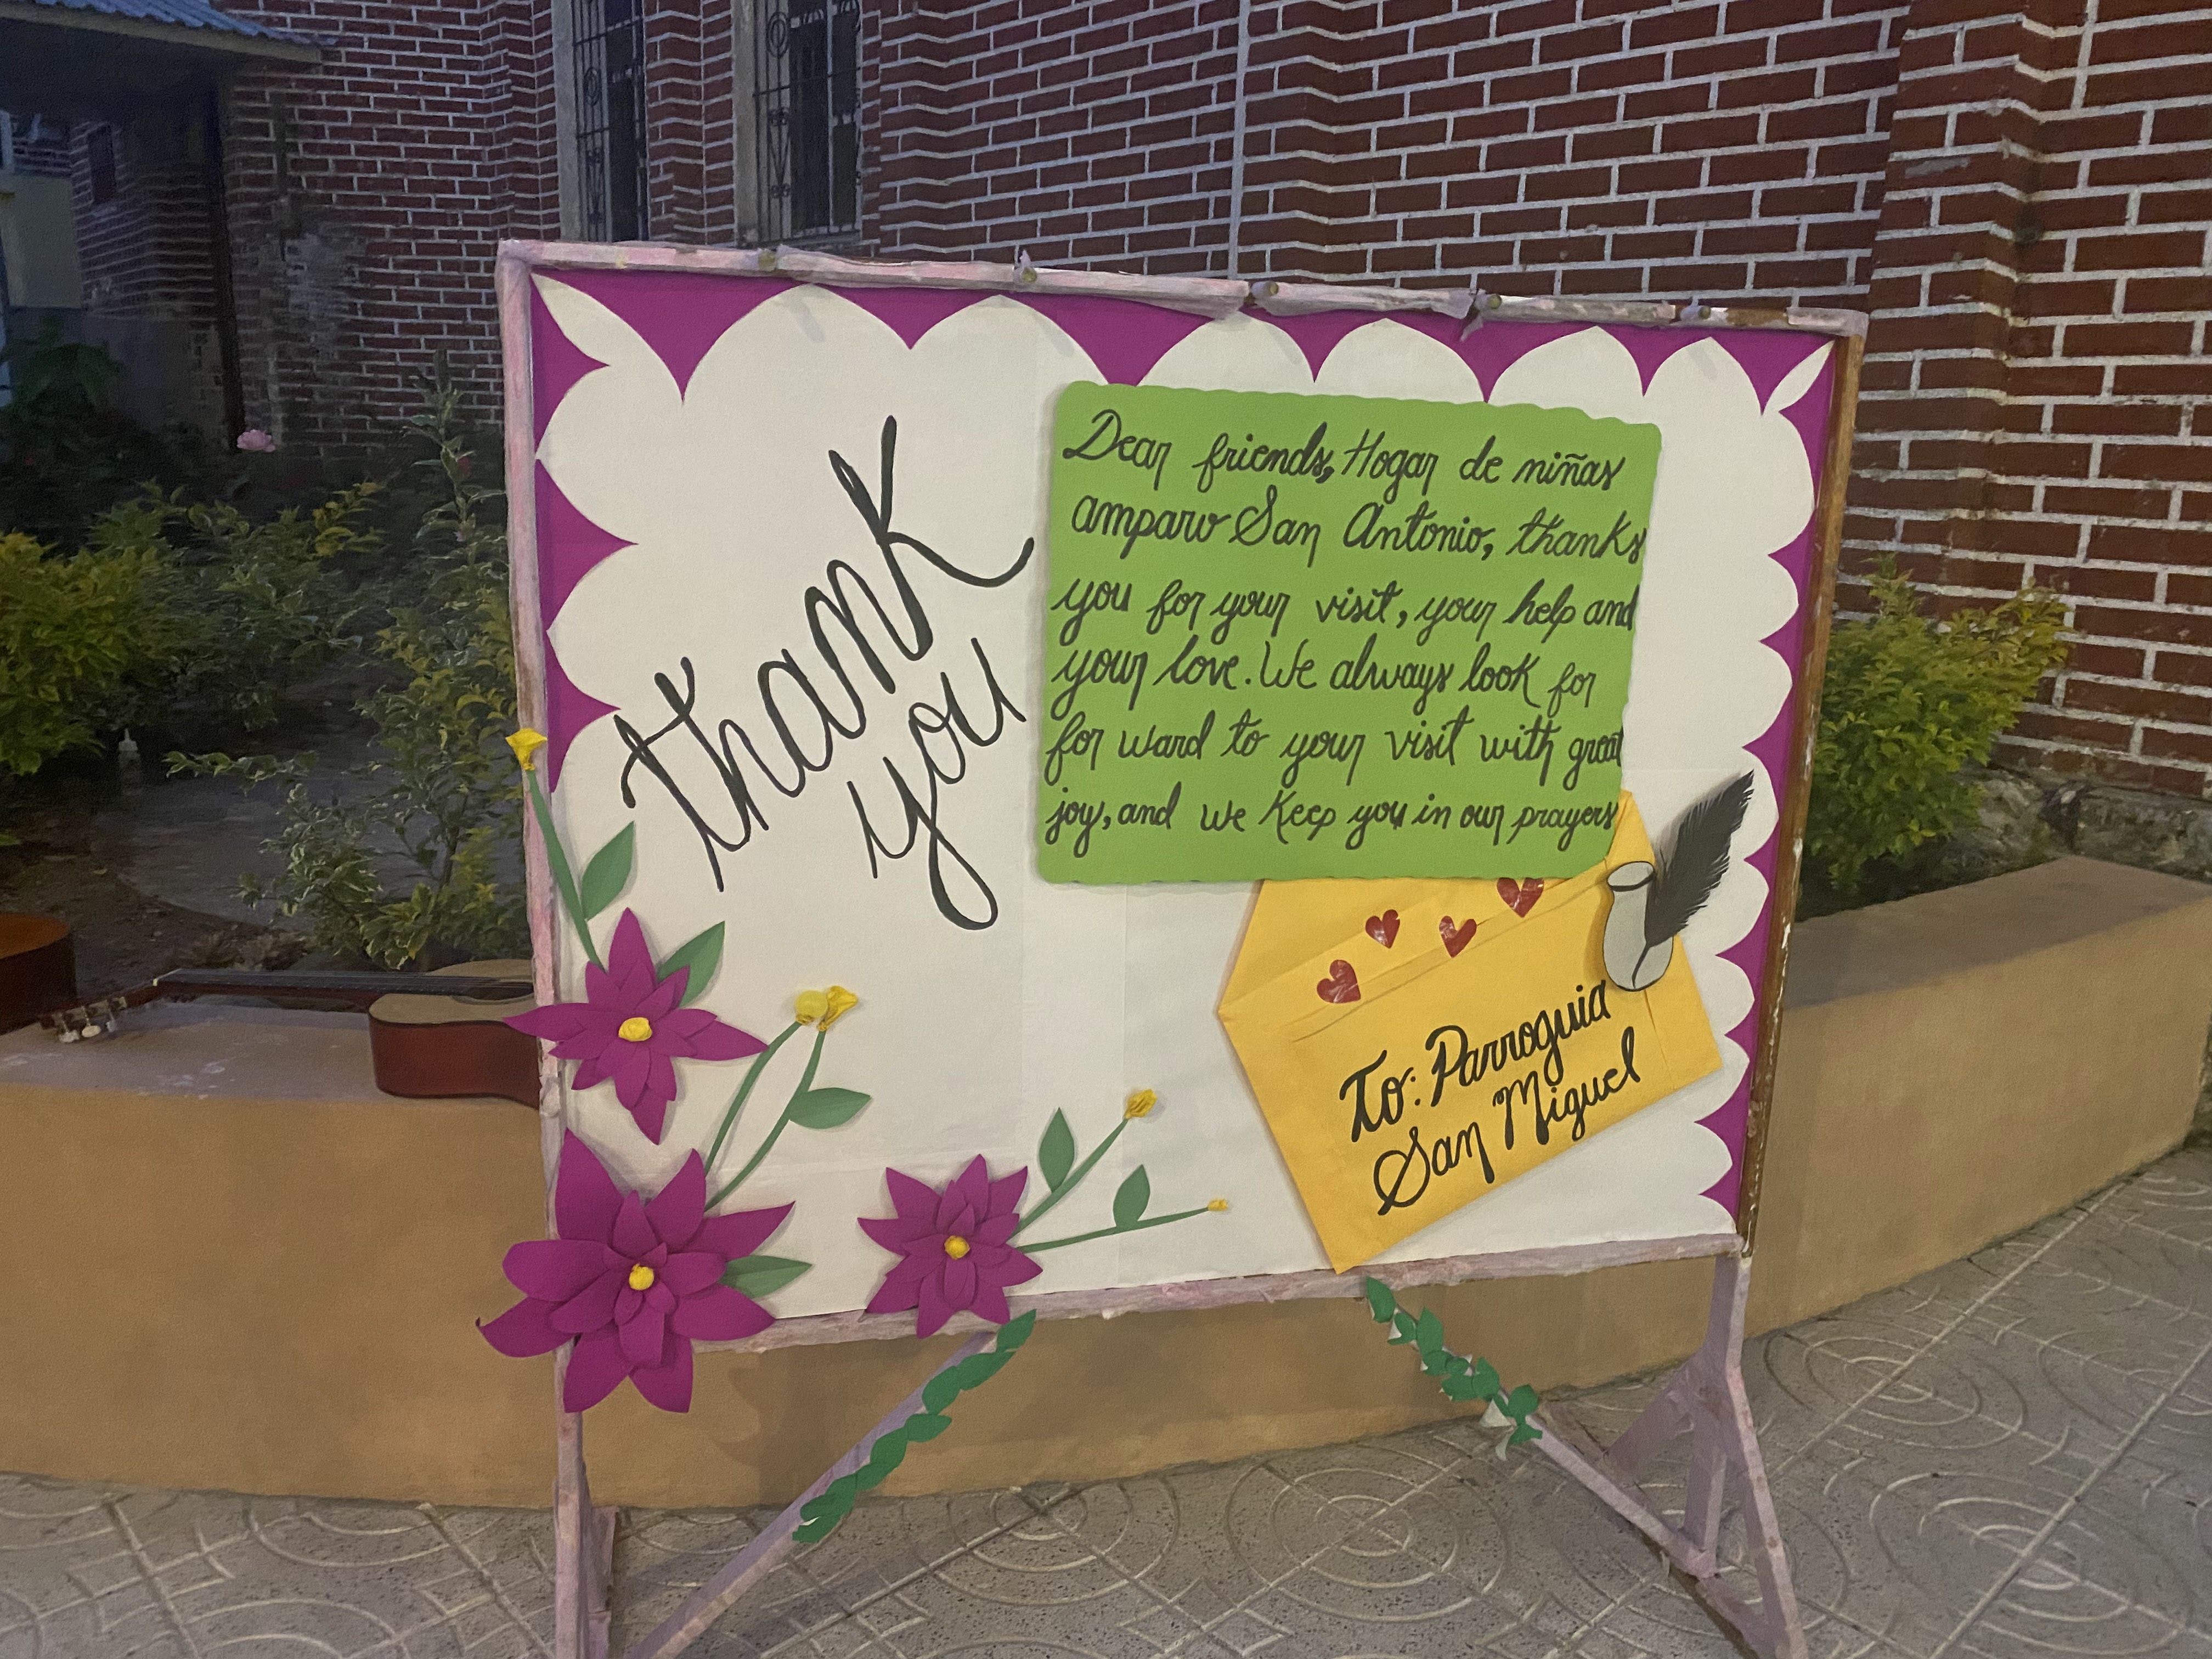 thank
you
Dear friends, Hogar de niñas
amparo San Antonio, thanks
you for your visit, your help and
your love. We always look for
for ward to your visit with great
joy, and we keep you in our prayers
To: Parroguia
San Miguel